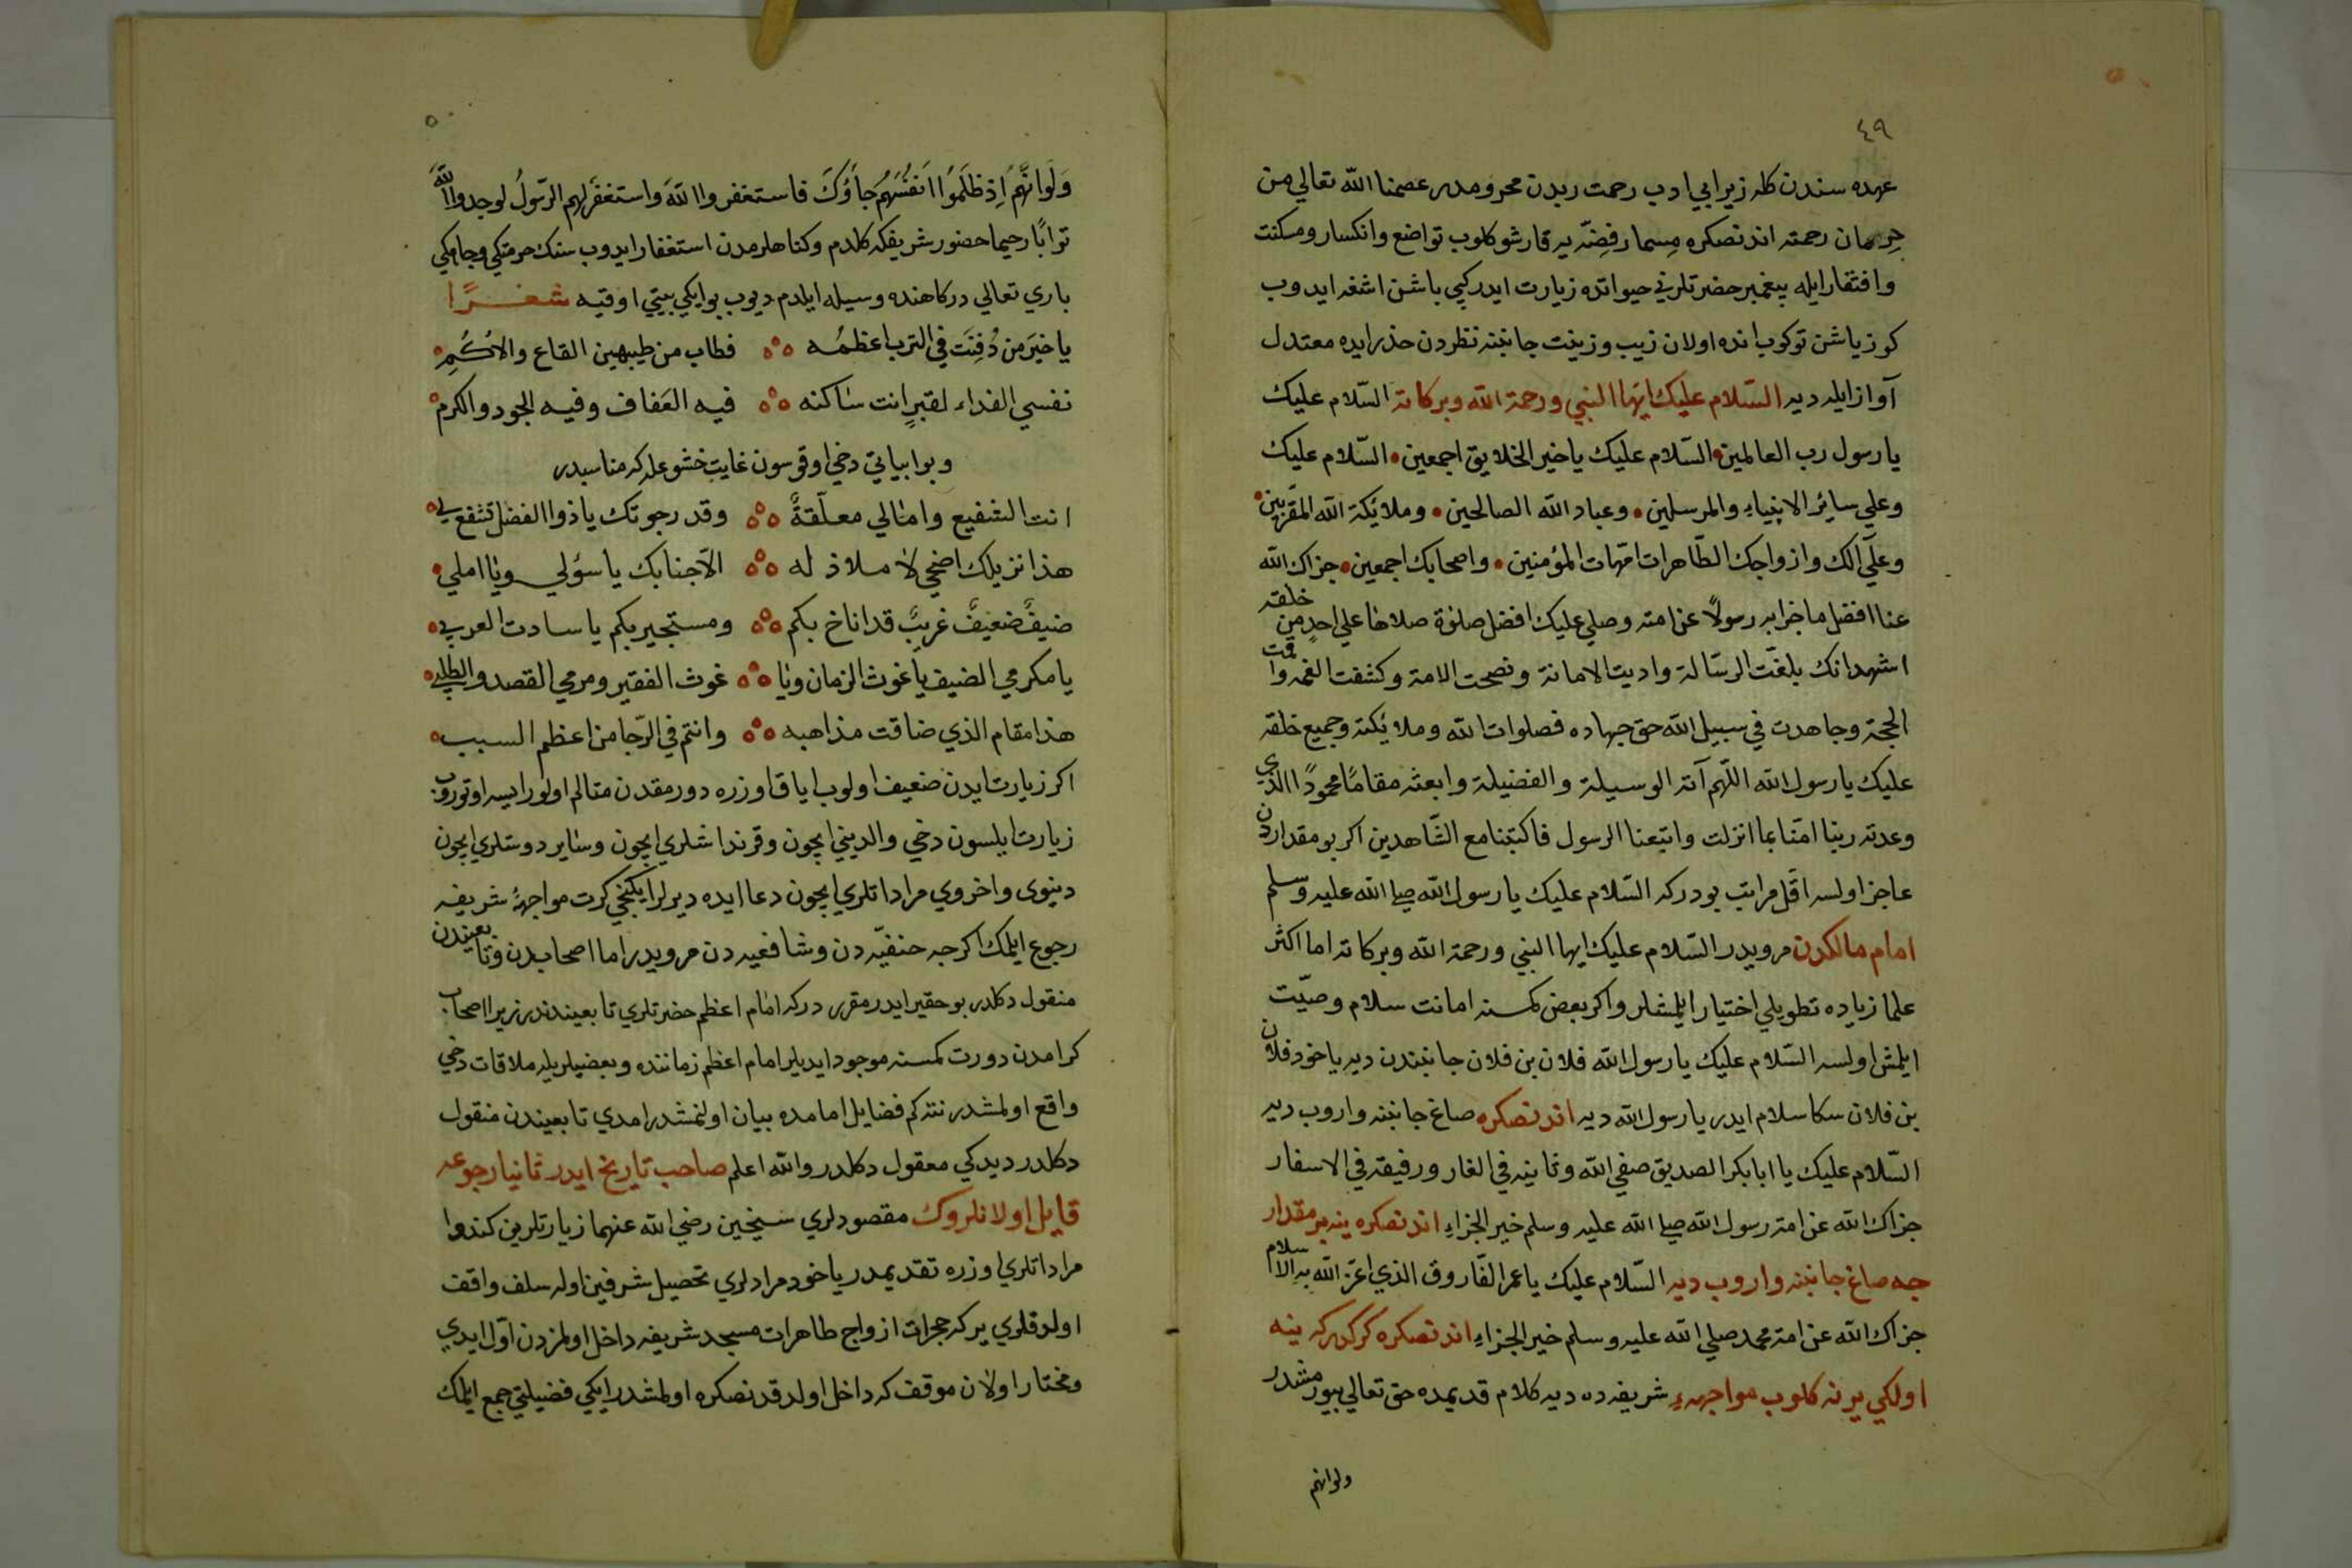 ٤٩
عهده سندن كله زيرا بي ادب رحمت ربدن محرومدر عصمنا الله تعالي من
حرمان رحمته اندنصكره مسمار فضّه يه قارشو كلوب تواضع وانكسار ومسكنت
وافتقار ايله پيغمبر حضرتلرني حيواتده زيارت ايدركبي باشن اشغه ايدوب
كوزياشن توكوب انده اولان زيب وزينت جانبنه نظردن حذر ايده معتدل
آواز ايله ديه السّلام عليك ايّها النبي ورحمة الله وبركاته السّلام عليك
يا رسول رب العالمين السّلام عليك يا خير الخلايق اجمعين السّلام عليك
وعلي سائر الانبياء والمرسلين وعباد الله الصالحين وملائكة الله المقرّبين
وعلي آلك وازواجك الطّاهرات امّهات المؤمنين واصحابك اجمعين جزاك الله
عنا افضل ما جزا به رسولًا عن امته وصلي عليك افضل صلوٰة صلاها علي احدٍ من خلقه
اشهد انك بلغت الرسالة واديت الامانة ونصحت الامة وكشفت الغمه واقمت
الحجة وجاهدت في سبيل الله حق جهاده فصلوات الله وملائكته وجميع خلقه
عليك يا رسول الله اللّهم آته الوسيلة والفضيلة وابعثه مقامًا محمودًا الذي
وعدته ربنا امنّا بما انزلت واتبعنا الرسول فاكتبنا مع الشّاهدين اكر بو مقداردن
عاجز اولسه اقل مراتب بودركه السّلام عليك يا رسول الله صلي الله عليه وسلم
امام مالكدن مرويدر السّلام عليك ايها النبي ورحمة الله وبركاته اما اكثر
علما زياده تطويلي اختيار ايلمشلر واكر بعض كمسنه امانت سلام وصيّت
ايلمش اولسه السّلام عليك يا رسول الله فلان بن فلان جانبندن ديه ياخود فلان
بن فلان سكا سلام ايدر يا رسول الله ديه اندنصكره صاغ جانبنه واروب ديه
السّلام عليك يا ابا بكر الصديق صفي الله وثانيه في الغار ورفيقه في الاسفار
جزاك الله عن امة رسول الله صلي الله عليه وسلم خير الجزاء اندنصكره ينه بر مقدار
جه صاغ جانبنه واروب ديه السّلام عليك يا عمر الفّاروق الذي اعزّ الله به الاسلام
جزاك الله عن امة محمد صلي الله عليه وسلم خير الجزاء اندنصكره كركدركه ينه
اولكي يرنه كلوب مواجهه شريفه ده ديه كلام قديمده حق تعالي بيورمشدر
ولوانهم
٥٠
وَلَوْ انَّهُمْ اِذ ظَلَمُوا انَفْسَهُم جَاؤُكَ فاستغفروا اللهَ واستغفَرلهم الرّسولُ لوجدوا اللّهَ
توابًا رحيما حضور شريفكه كلدم وكناهلرمدن استغفار ايدوب سنك حرمتكي وجاهكي
باري تعالي دركاهنده وسيله ايلدم ديوب بو ايكي بيتي اوقيه شعــرًا
يا خيرَ من دُفِنَت في الترب اعظمُه فطاب من طيبهين القاع والاكُمِ
نفسي الفداء لقبرٍ انت ساكنه فيه العَفاف وفيه الجود والكرم
وبو ابياتي دخي اوقوسون غايت خشوعله كه مناسبدر
انت الشفيع وامالي معلّقةٌ وقد رجوتك يا ذو الفضل تشفع لي
هذا نزيلك اضحي لا ملاذ له الّا جنابك يا سؤلي ويا املي
ضيفٌ ضعيفٌ غريبٌ قد اناخ بكم ومستجير بكم يا سادت العرب
يا مكرمي الضيف يا غوث الزمان ويا غوث الفقير ومرمي القصد والطلب
هذا مقام الذي ضاقت مذاهبه وانتم في الرّجا من اعظم السبب
اكر زيارت ايدن ضعيف اولوب اياق اوزره دورمقدن متالم اولور ايسه اوتوروب
زيارت ايلسون دخي والديني ايچون وقرنداشلري ايچون وساير دوستلري ايچون
دنيوى واخروي مراداتلري ايچون دعا ايده ديرلر ايكنجي كرت مواجهۀ شريفه
رجوع ايلمك اكرچه حنفيّه دن وشافعيه دن مرويدر اما اصحابدن وتابعيندن
منقول دكلدر بو حقير ايدر مقرر دركه امام اعظم حضرتلري تابعيندندر زيرا اصحاب
كرامدن دورت كمسنه موجود ايديلر امام اعظم زماننده وبعضيلريله ملاقات دخي
واقع اولمشدر نته كم فضايل امامده بيان اولنمشدر امدي تابعيندن منقول
دكلدر ديدكي معقول دكلدر والله اعلم صاحب تاريخ ايدر ثانيا رجوعه
قايل اولانلروك مقصودلري شيخين رضي الله عنهما زيارتلرين كندوا
مراداتلري اوزره تقديمدر ياخود مرادلري تحصيل شرفين اوله سلف واقف
اولدقلري يركه حجرات ازواج طاهرات مسجد شريفه داخل اولمزدن اوّل ايدي
ومختار اولان موقف كه داخل اولدقدنصكره اولمشدر ايكي فضيلتي جمع ايلمك